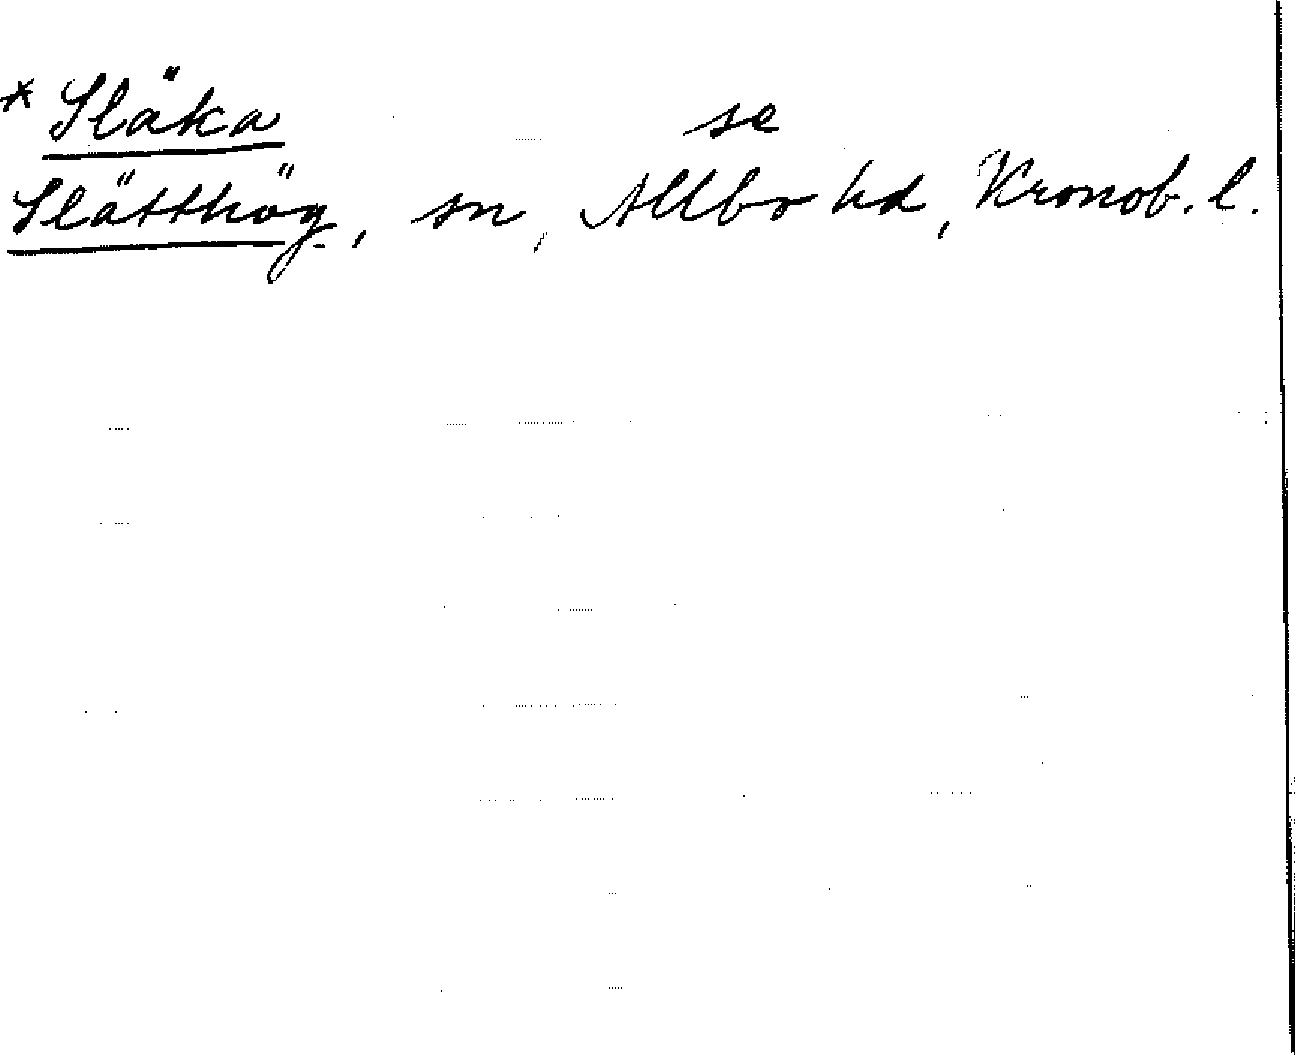 * Släka se
Slätthög, sn, Allbo hd, Kronob. l.